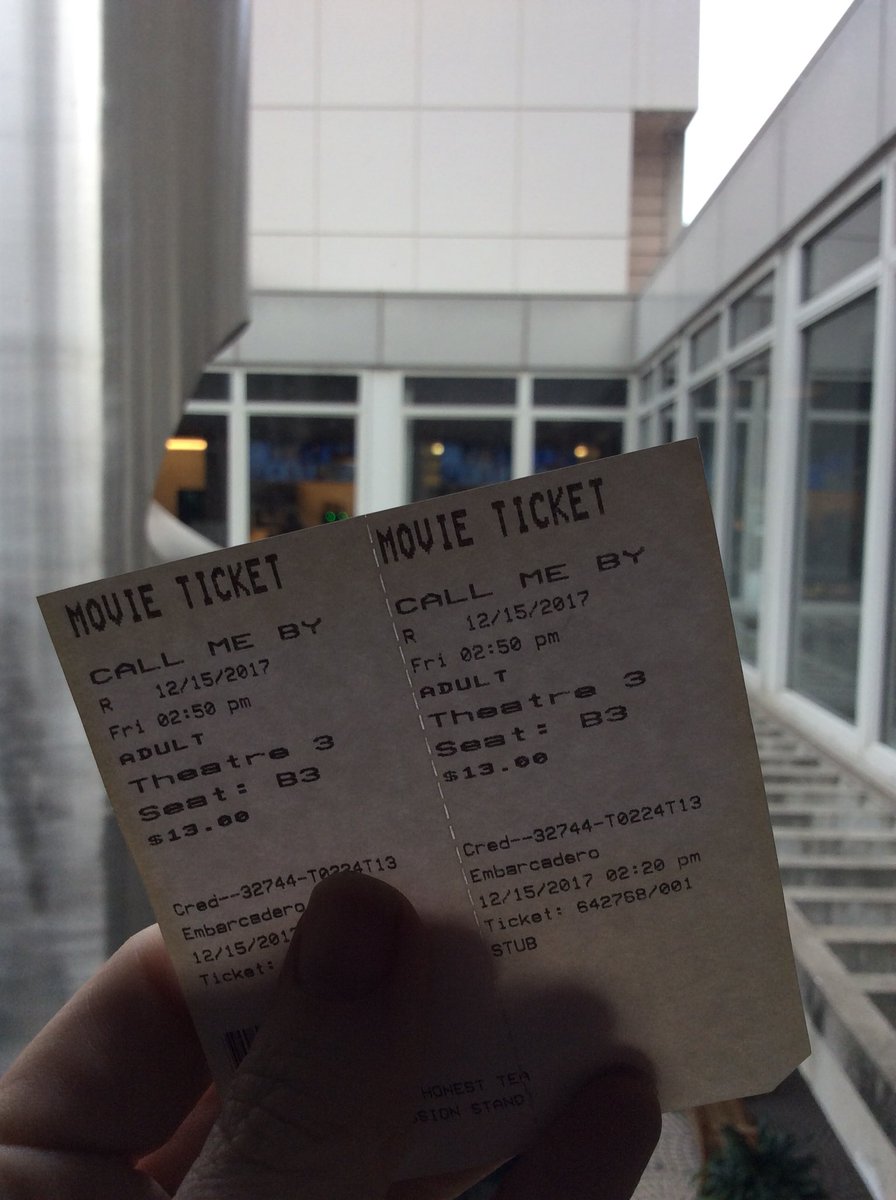 MOVIE TICKET
CALL ME BY
R 12/15/2017
Fri 02:50 pm
ADULT
Theatre 3
Seat: B3
$13.00
Cred--32744-T0224T13
Embarcadero
12/15/2017
Ticket:
HONEST TEA
SSION STAND
MOVIE TICKET
CALL ME BY
R 12/15/2017
Fri 02:50 pm
ADULT
Theatre 3
Seat: B3
$13.00
Cred--32744-T0224T13
Embarcadero
12/15/2017 02:20 pm
Ticket: 642768/001
STUB